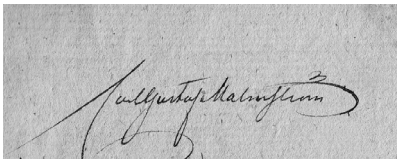 Carl Gustaf Malmström